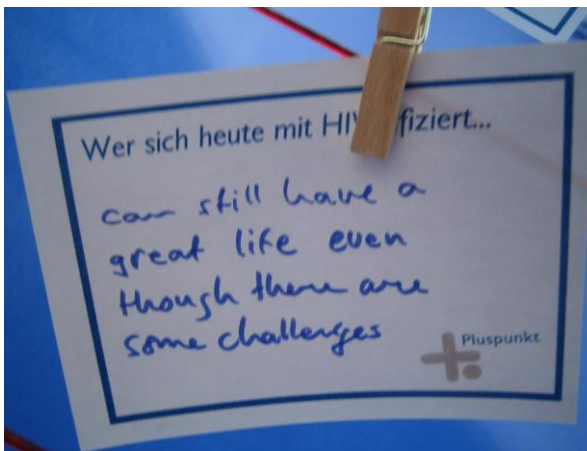 Wer sich heute mit HIV fiziert...
can still have a
great life even
though there are
some challenges
Pluspunkt